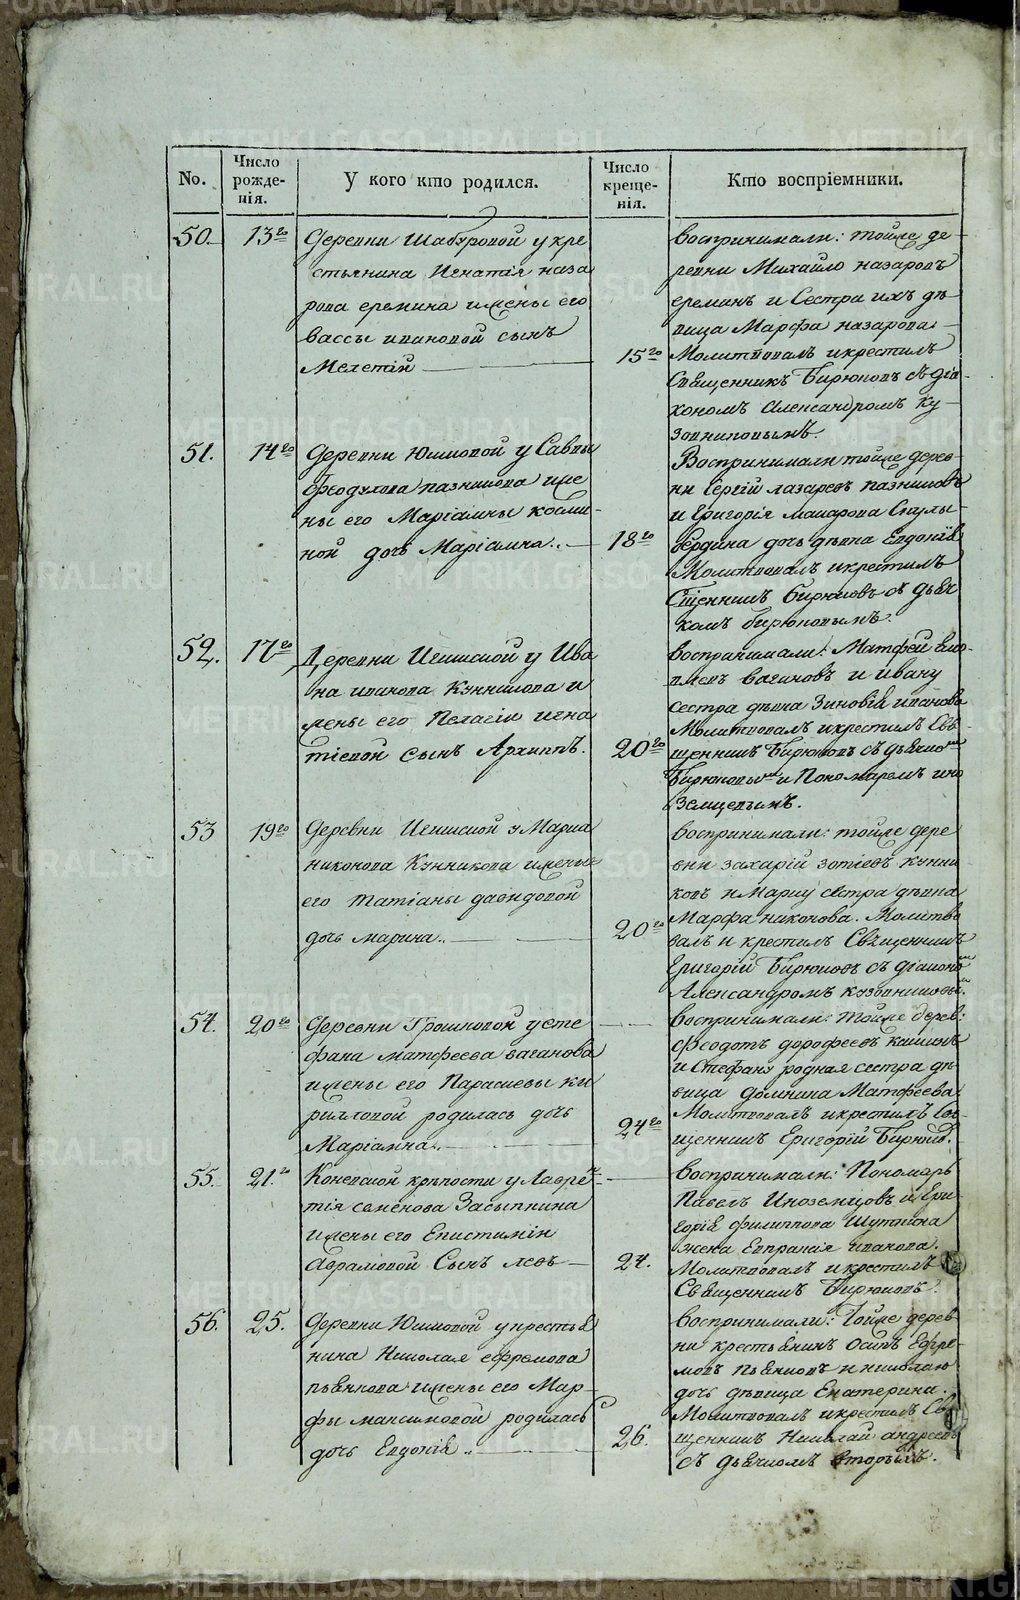 No.
Число рожде-
нія.
У кого кто родился.
Число креще-
нія.
Кто воспріемники.
50.
13го
Деревни Шабуровой у кре
стьянина Игнатія наза
рова еремина и жены его
вассы ивановой сынъ
Мелетій
15го
воспринимали: тойже де-
ревни Михайло назаровъ
ереминъ и Сестра ихъ дѣ-
вица Марфа назарова.
Молитвовалъ и крестилъ
Священникъ Бирюковъ съ діа-
кономъ александромъ ку-
зовниковымъ.
51.
14го
Деревни Юшковой у Саввы
Феодулова казникова и же
ны его Маріамны косми-
ной дочь Маріамна.
18го
Воспринимали тойже дерев-
ни Сергій лазаревъ
и Григорія макарова
дочь дѣвка Евдокія
Молитвовалъ и крестилъ
Сщенникъ Бирюковъ съ дьяч
комъ бирюковымъ.
52.
17го
Деревни Игишской у Ива
на иванова Кунникова и
жены его Пелагіи игна
тіевой сынъ Архиппъ.
20го
воспринимали: Матфей
вагановъ и ивану
сестра дѣвка Зиновія иванова
Молитвовалъ и крестилъ Свя
щенникъ Бирюковъ съ дьячком
Бирюковым и Пономаремъ ино
земцевымъ.
53
19го
Деревни Игишской у Марка
никонова Кунникова и жены
его татіаны давидовой
дочь марина.
20го
воспринимали: тойже дере
вни захарій зотіевъ кунни
ковъ и Марку сестра дѣвка
Марфа никонова. Молитво
валъ и крестилъ Священникъ
Григорій Бирюковъ съ діаконом
Александромъ кузовниковым.
54.
20го
Деревни Грошковой у сте
фана матфеева ваганова
и жены его Парасковьи ки
рилловой родилась дочь
Маріамна.
24го
воспринимали: тойже дерев:
Феодотъ дорофеевъ
и Стефану родная сестра дѣ
вица домнина Матфеева.
Молитвовалъ и крестилъ Свя
щенникъ Григорій Бирюков.
55.
21.го
Коневской крѣпости у Лаврен
тія семенова Засыпкина
и жены его Епистиміи
Аврамовой Сынъ левъ
24.
воспринимали: Пономарь
Павелъ Иноземцовъ и Гри-
горія филиппова
жена Евпраксія иванова.
Молитвовалъ и крестилъ
Священникъ Бирюковъ.
56.
25.
Деревни Юшковой у крестья
нина Николая ефремова
пьянкова и жены его Мар-
фы максимовой родилась
дочь Евдокія
26.
воспринимали: Тойже дерев
ни крестьянин Осипъ Ефре-
мовъ пьянковъ и николаю
дочь дѣвица Екатерина.
Молитвовалъ и крестилъ Свя
щенникъ Николай андреевъ
съ дьячкомъ вторымъ.
METRIKI.GASO-URAL.RU